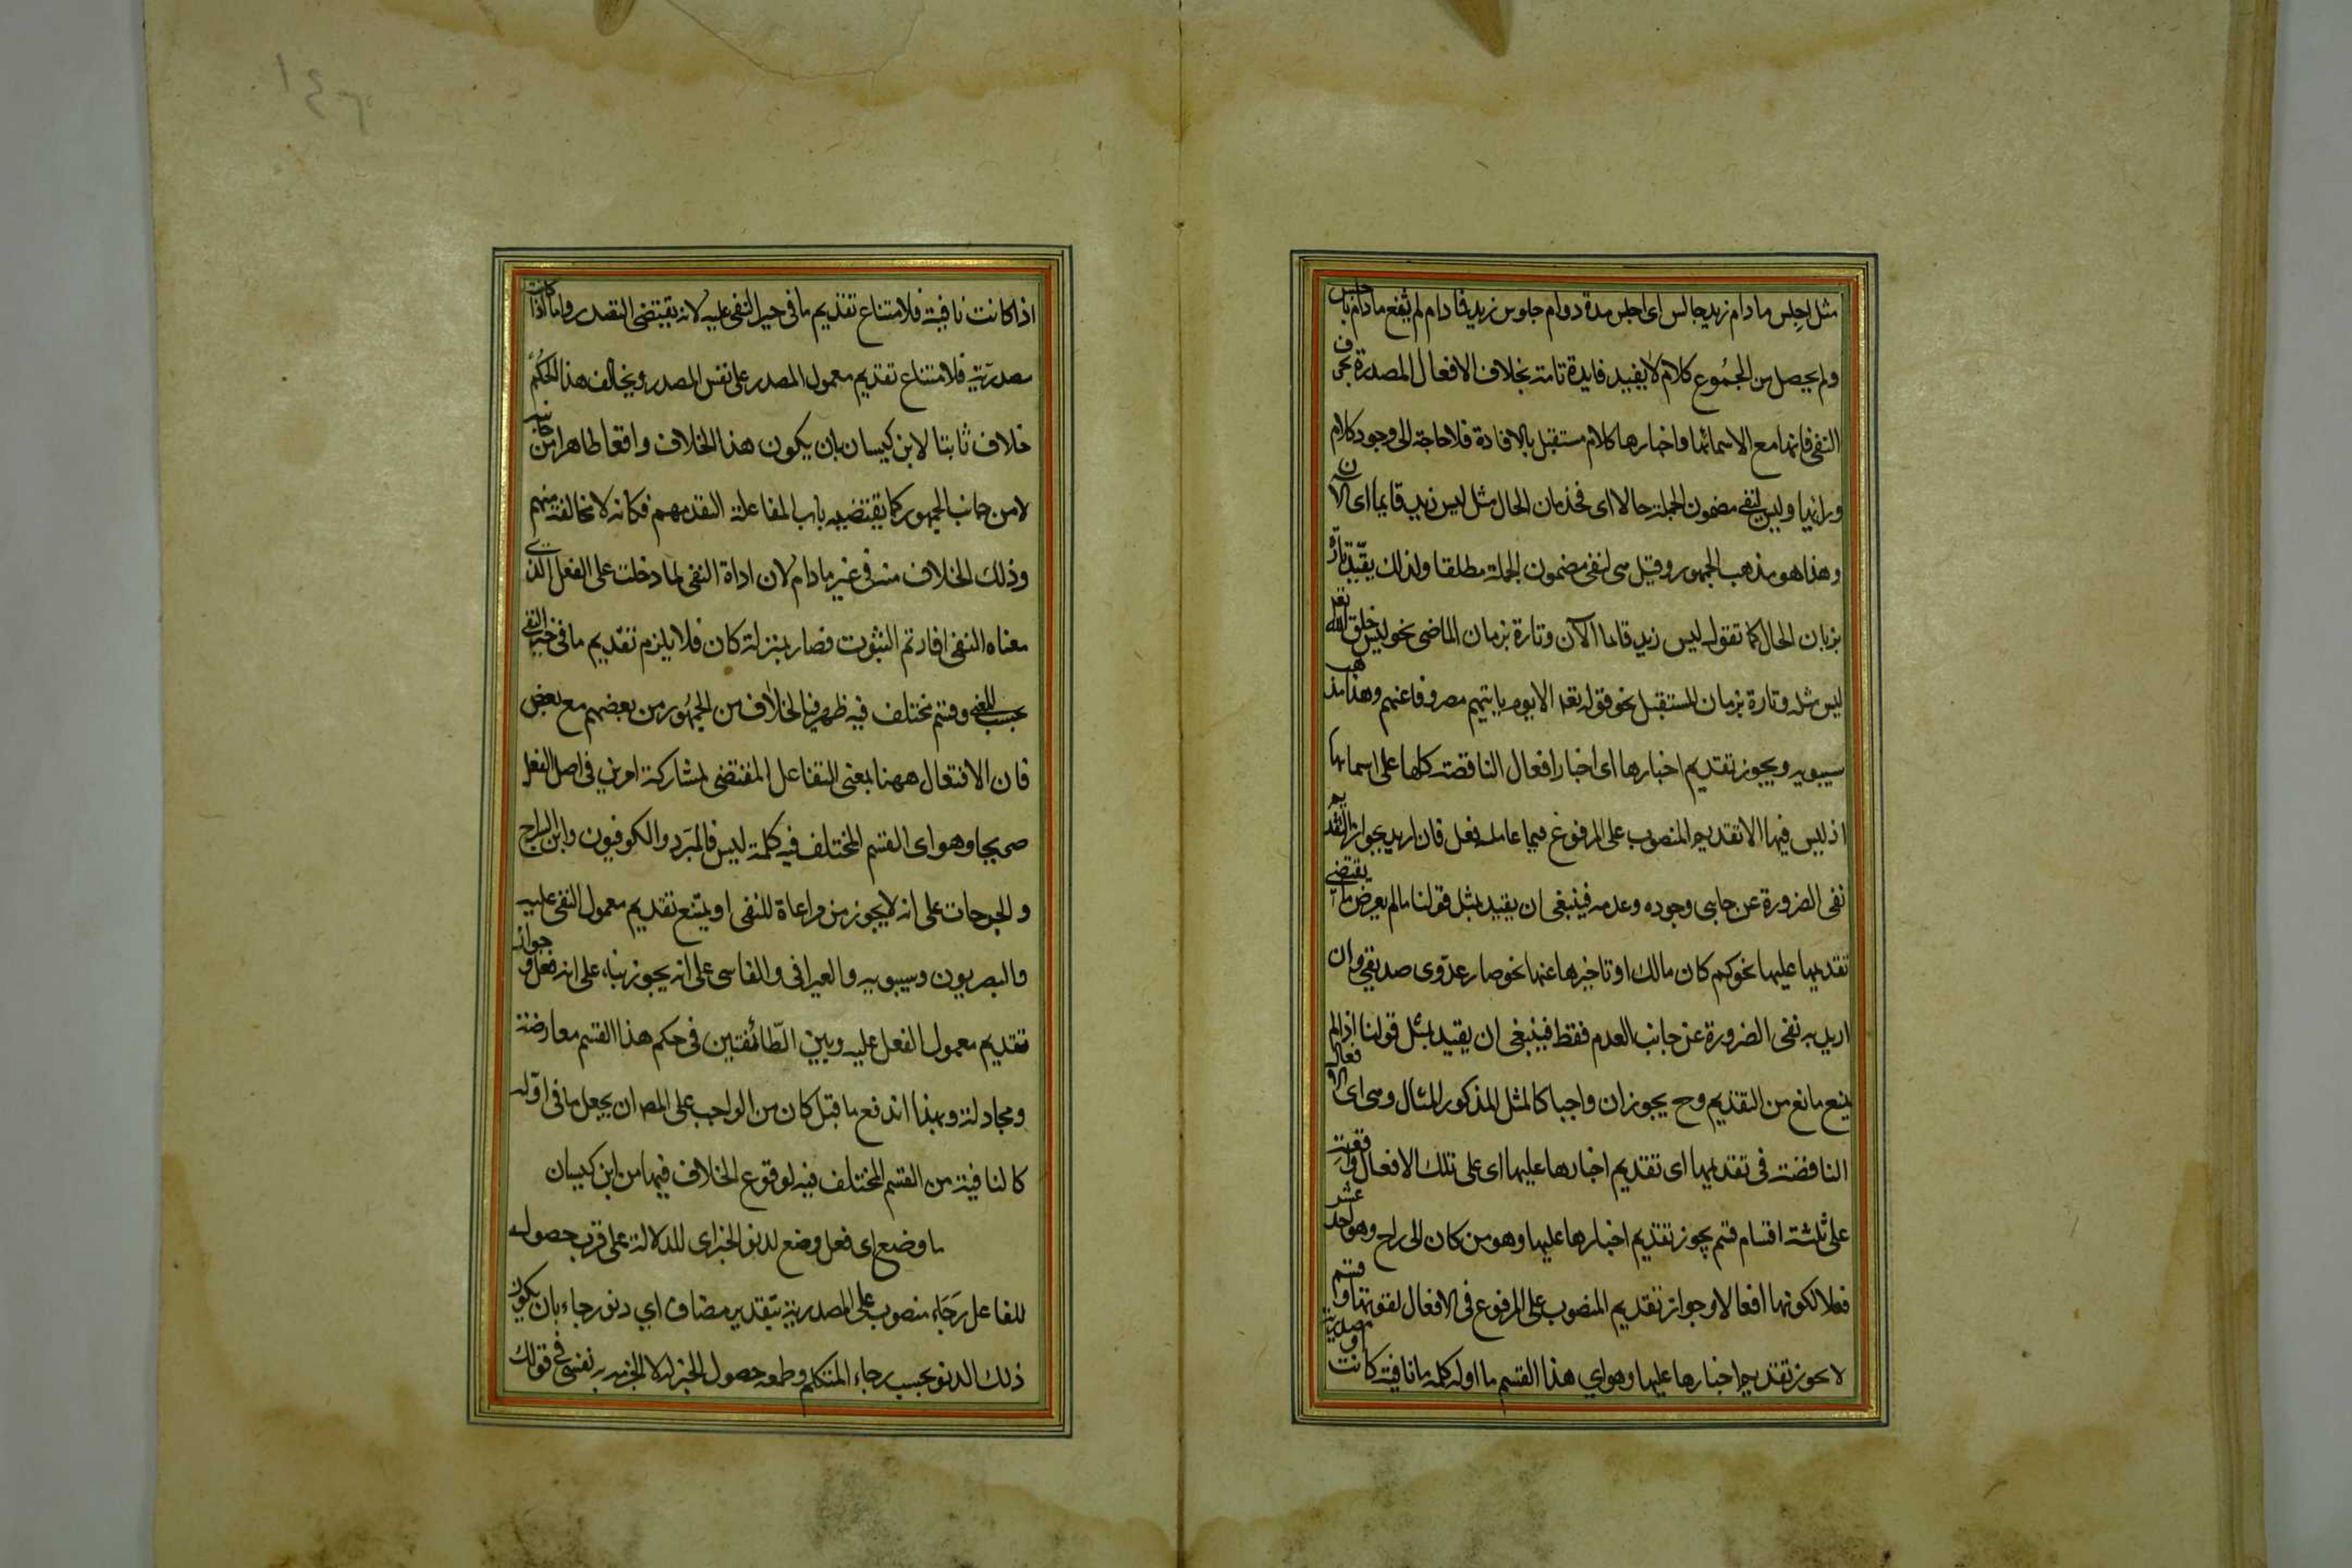 مثل اجلس مادام زيد جالس اى اجلس مدة دوام جلوس زيد فا دام لم ثيفع مادام باجلس
ولم يحصل من الجموع كلام لا يفيد فايدة تامة بخلاف الافعال المصدرة بحرف
النفى فانها مع الاسمائها واخبارها كلام مستقبل بالافادة فلا حاجة الى وجود كلام
ورانيا وليس لنفى مضمون الجملة حالا اى فى زمان الحال مثل ليس زيد قايما اى الان
وهذا هو مذهب الجمهور وقيل هى لنفى مضمون الجملة مطلقا ولذلك يقيد تارة
بزمان الحال كما تقول ليس زيد قاما الآن وتارة بزمان الماضى نحو ليس خلق الله
ليس مثله وتارة بزمان المستقبل نحو قوله تعه الا يوم ياتيهم مصروفا عنهم وهذا مذهب
سيبويه ويجوز تقديم اخبارها اى اخبار افعال الناقصة كلها على اسمائها
اذ ليس فيها الا تقديم المنصوب على المرفوع فيما عامله فعل فان اريد بجواز التقديم
نفى الضرورة عن جانبى وجوده وعدمه فينبغى ان يقيد بمثل قولنا مالم يعرض ما يقتضى
تقديمها عليها نحو كم كان مالك او تاخيرها عنها نحو صار عدوى صديقى وان
اريد به نفى الضرورة عن جانب العدم فقط فينبغى ان يقيد بمثل قولنا اذا لم
يمنع مانع من التقديم وح يجوز ان واجبا كالمثل المذكور المثال وهى اى الافعال
الناقصة فى تقديمها اى تقديم اخبارها عليها اى على تلك الافعال واقعة
على ثلثة اقسام قسم يجوز تقديم اخبارها عليها وهو من كان الى راح وهو احد عشر
فعلا لكونها افعالا وجواز تقديم المنصوب على المرفوع فى الافعال لقوتها وقسم
لا يجوز تقديم اخبارها عليها وهو اي هذا القسم ما اوله كلمة ما نافية كانت او مصدرية
اذا كانت نافية فلامتناع تقديم ما فى حيز النفى عليه لانه يقتضى التصدر واما اذا كانت
مصدرية فلامتناع تقديم معمول المصدر على نفس المصدر ويخالف هذا الحكم
خلاف ثابتا لابن كيسان بان يكون هذا الخلاف واقعا ظاهرا من جانبه
لا من جانب الجمهور كما يقتضيه باب المفاعلة التقدمهم فكانه لا مخالفة منهم
وذلك الخلاف منه فى غير مادام لان اداة النفى لما دخلت على الفعل الذى
معناه النفى افادتم الثبوت فصار بمنزلة كان فلا يلزم تقديم ما فى حيز النفى
بحسب المعنى وقسم مختلف فيه ظهر فيه الخلاف من الجمهور من بعضهم مع بعض
فان الافتعال ههنا بمعنى التفاعل المقتضى لمشاركة امرين فى اصل الفعل
صريحا وهو اى القسم المختلف فيه كلمة ليس فالمبرد والكوفيون وابن السراج
والجرجات على انه لا يجوز من مراعاة للنفى او يمتنع تقديم معمول النفى عليه
والبصريون وسيبويه والعيرافى والفاسى على انه يجوز بناء على انه فعل وجواز
تقديم معمول الفعل عليه وبين الطائفتين فى حكم هذا القسم معارضة
ومجادلة وبهذا اندفع ما قيل كان من الواجب على المص ان يجعل ما فى اوله
كالنافية من القسم المختلف فيه لوقوع الخلاف فيها من ابن كيسان
ما وضع اى فعل وضع لدنو الخبر اى للدلالة على قرب حصوله
للفاعل رجاء منصوب على المصدرية بتقدير مضاف اي دنو رجاء بان يكون
ذلك الدنو بحسب رجاء المتكلم وطمعه حصول الخبر له لا الجزم به نفسى فى قولك